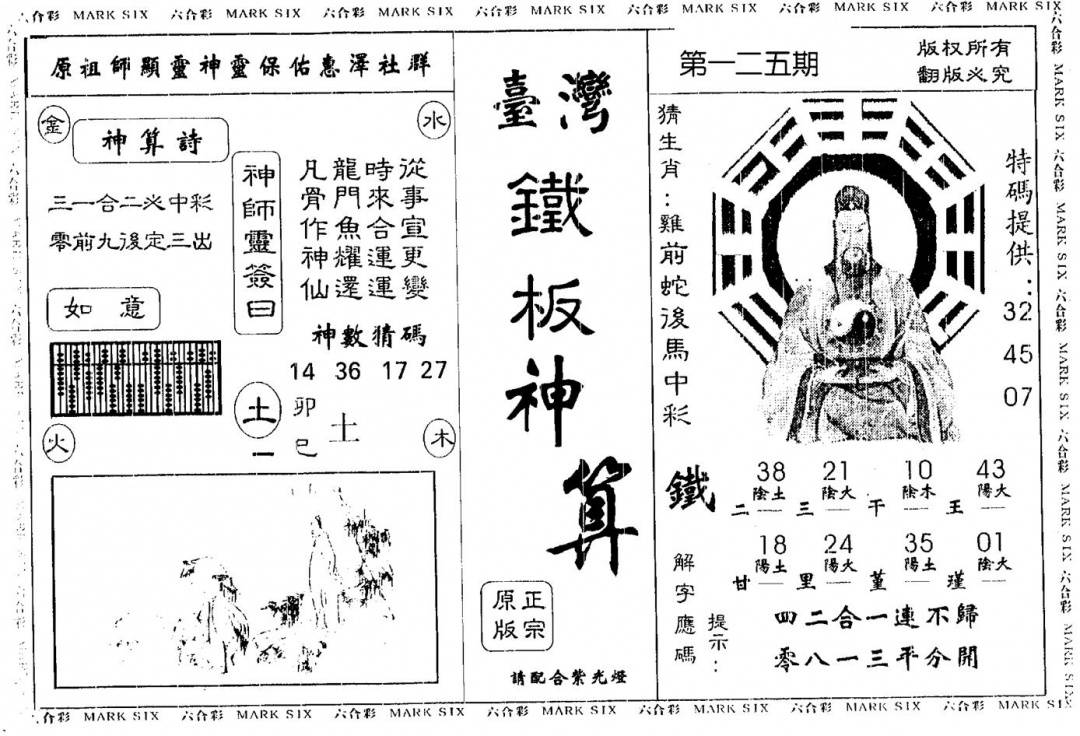 六合彩 MARK SIX 六合彩 MARK SIX 六合彩 MARK SIX 六合彩 MARK SIX 六合彩 MARK SIX 六合彩 MARK SIX 六合彩 MARK SIX
原祖師顯靈神靈保佑惠澤社群
金
水
神算詩
三一合二必中彩
零前九後定三出
如意
神師靈簽曰
從事宣更變
時來合運運
龍門魚耀還
凡骨作神仙
神數猜碼
14 36 17 27
土
一
卯
巳
土
火
木
臺灣
鐵板神算
正宗
原版
請配合紫光燈
第一二五期
版权所有
翻版必究
猜生肖:雞前蛇後馬中彩
特碼提供:
32
45
07
鐵
38 21 10 43
陰土 陰火 陰木 陽火
二 三 干 王
18 24 35 01
陽土 陽火 陽土 陰火
甘 里 堇 瑾
解字應碼
提示:
四二合一連不歸
零八一三平分開
六合彩 MARK SIX 六合彩 MARK SIX 六合彩 MARK SIX 六合彩 MARK SIX 六合彩 MARK SIX 六合彩 MARK SIX 六合彩 MARK SIX